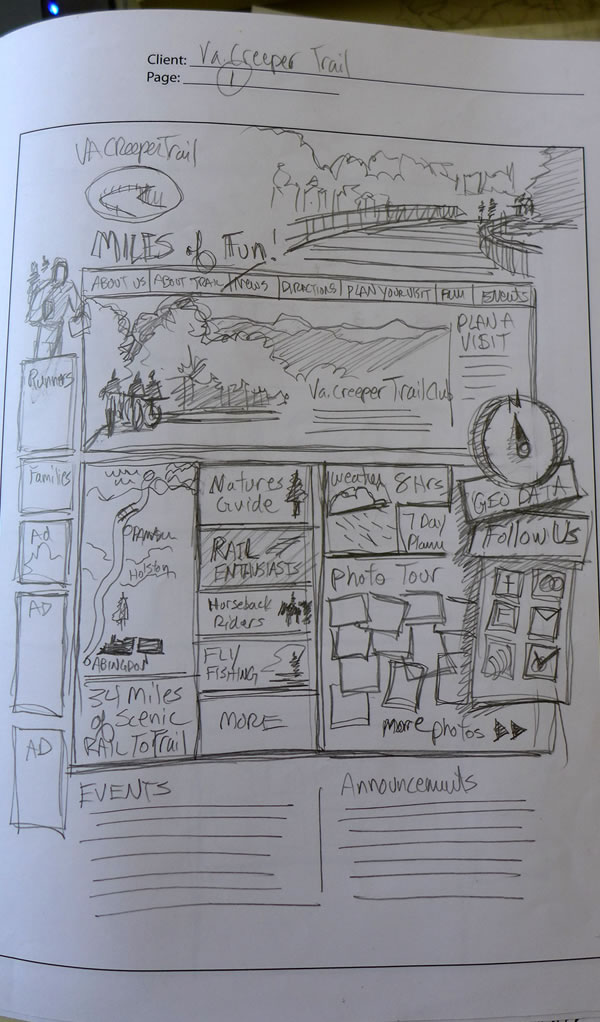 Client: Va. Creeper Trail
Page: 1
VA CReeperTrail
MILES of Fun!
ABOUT US
ABOUT TRAIL
NEWS
DIRECTIONS
PLAN YOUR VISIT
FUN
EVENTS
PLAN A
VISIT
Va. Creeper Trail Club
N
Runners
Families
Ad
AD
AD
Holston
ABINGDON
34 Miles
of Scenic
RAIL To Trail
Natures
Guide
RAIL
ENTHUSIASTS
Horseback
Riders
FLY
FISHING
MORE
Weather
8 Hrs
7 Day
Photo Tour
more photos
GEO DATA
Follow Us
EVENTS
Announcements